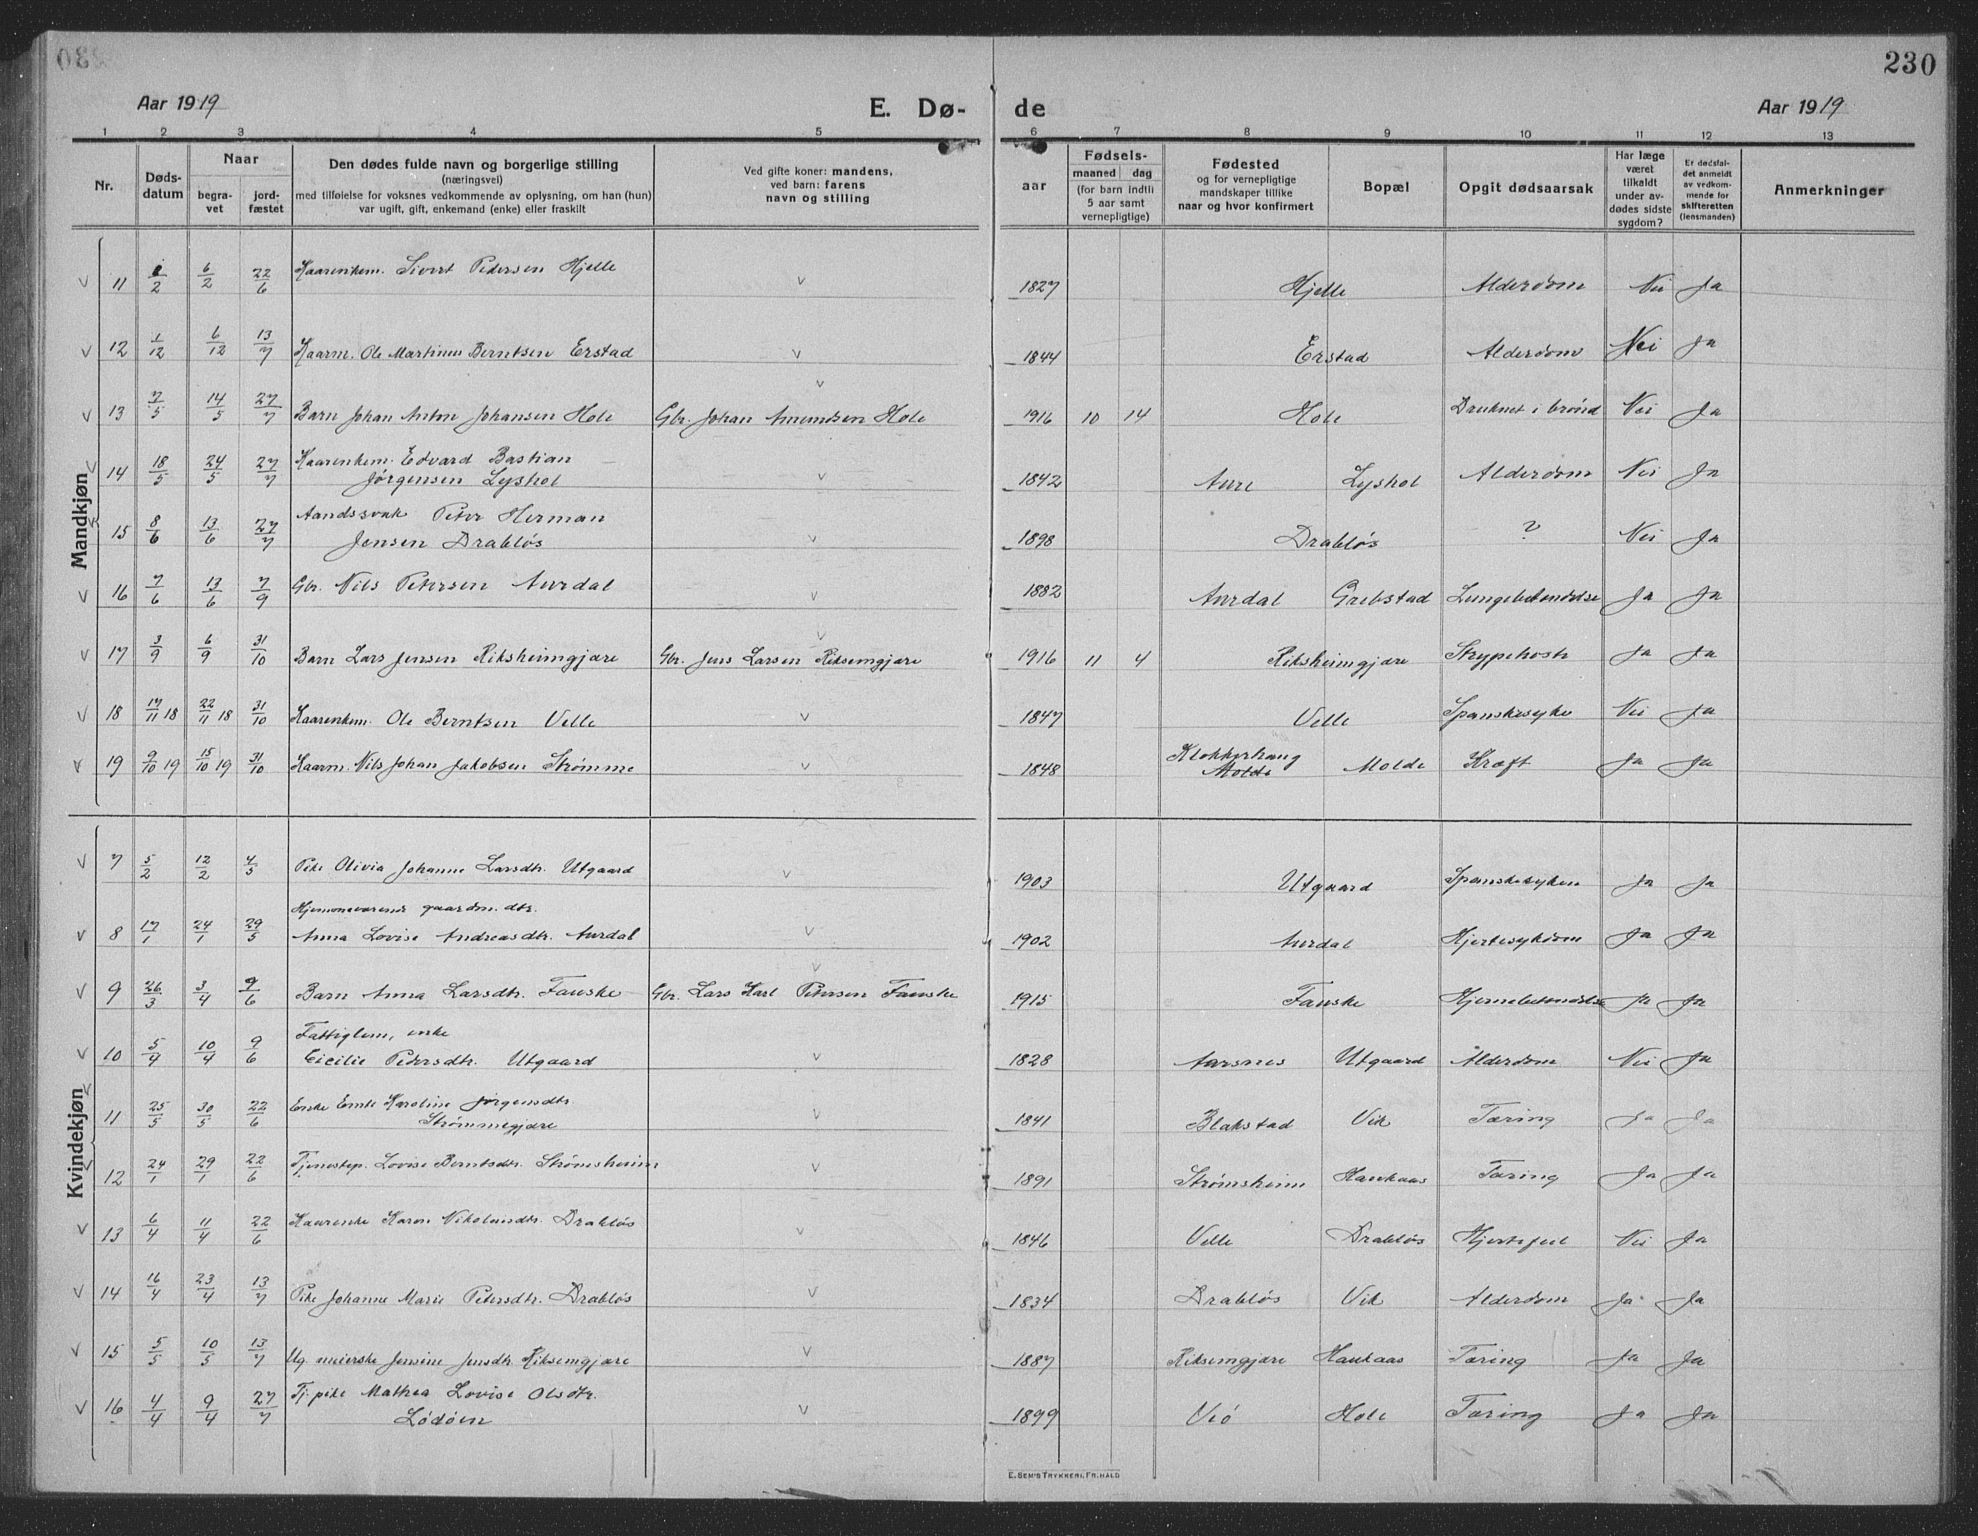 230
Aar 1919
E. Dø- de
Aar 1919
1 2 3 4 5 6 7 8 9 10 11 12 13
Nr.
Døds-
datum
Naar
begra-
vet
jord-
fæstet
Den dødes fulde navn og borgerlige stilling
(næringsvei)
med tilføielse for voksnes vedkommende av oplysning, om han (hun)
var ugift, gift, enkemand (enke) eller fraskilt
Ved gifte koner: mandens,
ved barn: farens
navn og stilling
aar
Fødsels-
maaned dag
(for barn indtil
5 aar samt
vernepligtige)
Fødested
og for vernepligtige
mandskaper tillike
naar og hvor konfirmert
Bopæl
Opgit dødsaarsak
Har læge
været
tilkaldt
under av-
dødes sidste
sygdom?
Er dødsfal-
det anmeldt
av vedkom-
mende for
skifteretten
(lensmanden)
Anmerkninger
Mandkjøn
11 2/2 6/2 22/6 Kaarenkem. Sivert Pedersen Hjelle v 1827 Hjelle Alderdom Nei Ja
12 1/12 6/12 13/7 Kaarm. Ole Martinus Berntsen Erstad v 1844 Erstad Alderdom Nei Ja
13 7/5 14/5 27/7 Barn Johan Anton Johansen Hole Gbr. Johan Amundsen Hole 1916 10 14 Hole Druknet i brønd Nei Ja
14 18/5 24/5 27/7 Kaarenkem. Edvard Bastian
Jørgensen Lyshol v 1842 Aure Lyshol Alderdom Nei Ja
15 8/6 13/6 27/7 Aandssvak Peter Herman
Jensen Drabløs v 1898 Drabløs ? Nei Ja
16 7/6 13/6 7/9 Gbr. Nils Petersen Aurdal v 1882 Aurdal Grebstad Lungebetændelse Ja Ja
17 3/9 6/9 31/10 Barn Lars Jensen Riksheimgjære Gbr. Jens Larsen Riksemgjære 1916 11 4 Riksheimgjære Strypehoste Ja Ja
18 17/11 18 22/11 18 31/10 Kaarenkem. Ole Berntsen Velle v 1847 Velle Spanskesyke Nei Ja
19 9/10 19 15/10 19 31/10 Kaarm. Nils Johan Jakobsen Strømme v 1848 Klokkerhaug
Molde Molde Kræft Ja Ja
Kvindekjøn
7 5/2 12/2 4/5 Pike Olivia Johanne Larsdtr. Utgaard v 1903 Utgaard Spanskesyken Ja Ja
8 17/1 24/1 29/5 Hjemmeværende gaardm. dtr.
Anna Lovise Andreasdtr. Aurdal v 1902 Aurdal Hjertesykdom Ja Ja
9 26/3 3/4 9/6 Barn Anna Larsdtr. Fauske Gbr. Lars Karl Petersen Fauske 1915 Fauske Hjernebetændelse Ja Ja
10 5/4 10/4 9/6 Fattiglem, enke
Cicilie Pedersdtr. Utgaard v 1828 Aursnes Utgaard Alderdom Nei Ja
11 25/5 30/5 22/6 Enke Emte Karoline Jørgensdtr.
Strømmegjære v 1841 Blakstad Vik Tæring Ja Ja
12 24/1 29/1 22/6 Tjenestep. Lovise Berntsdtr. Strømsheim v 1891 Strømsheim Haukaas Tæring Ja Ja
13 6/4 11/4 22/6 Kaarenke Karen Nikolaisdtr. Drabløs v 1846 Velle Drabløs Hjertefeil Nei Ja
14 16/4 23/4 13/7 Pike Johanne Marie Petersdtr. Drabløs v 1834 Drabløs Vik Alderdom Ja Ja
15 5/5 10/5 13/7 Ug. meierske Jensine Jensdtr. Riksemgjære v 1887 Riksemgjære Haukaas Tæring Ja Ja
16 4/4 9/4 27/7 Tj. pike Mathea Lovise Olsdtr.
Lødøen v 1899 Veø Hole Tæring Ja Ja
E. SEM'S TRYKKERI, FR.HALD